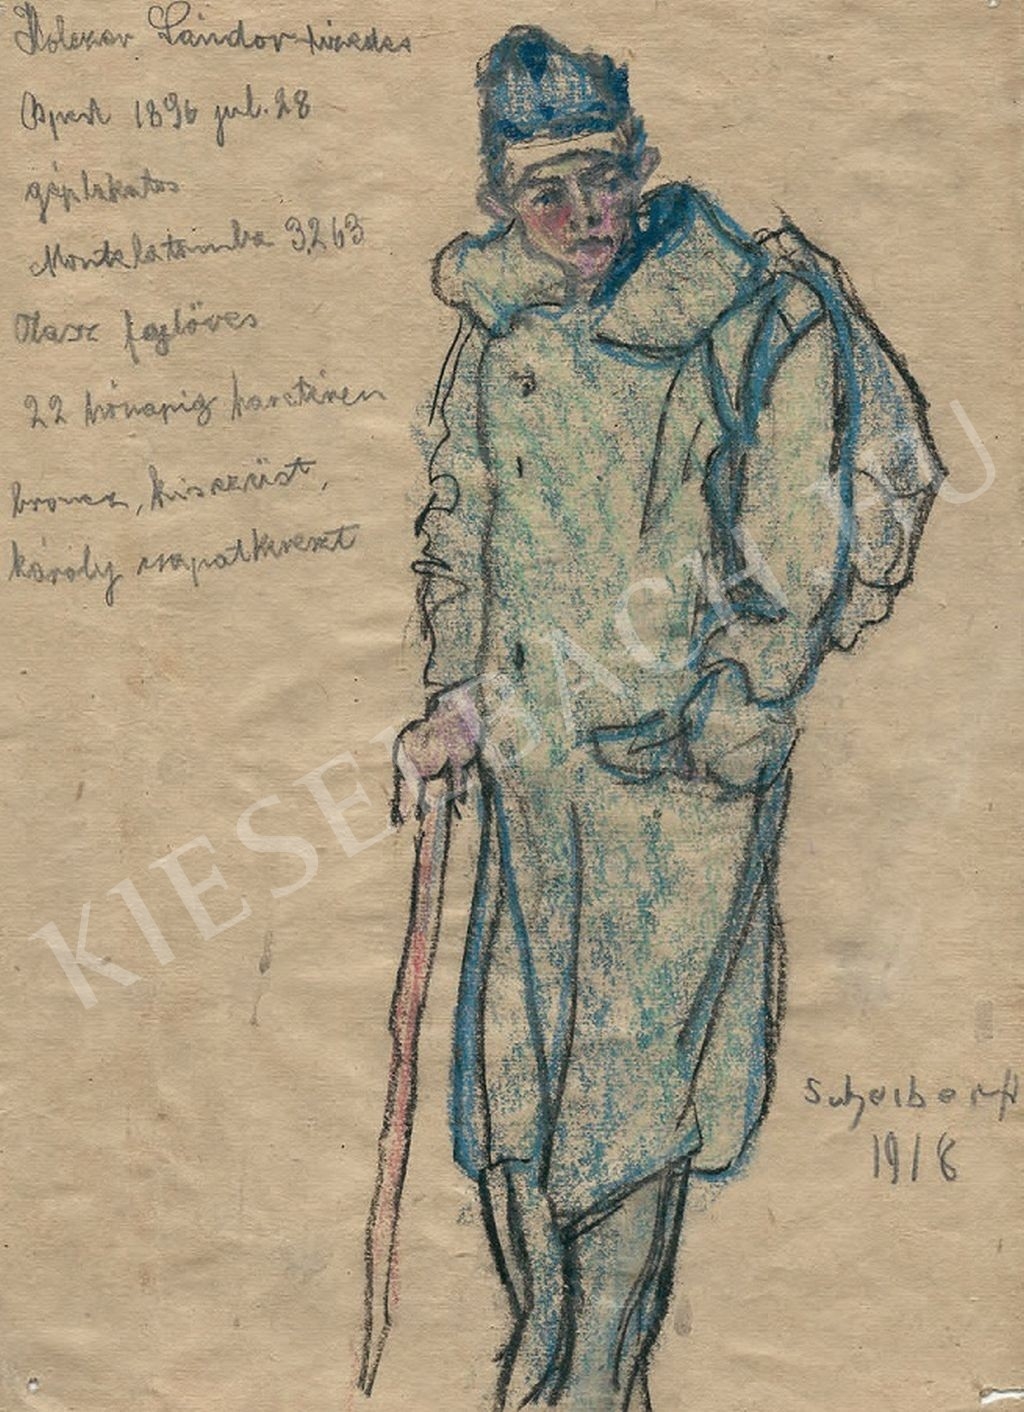 Sándor tizedes
Bpest 1896 jul. 28
géplakatos
Montelatomba 3,263
Olasz fejlöves
22 hónapig harctéren
bronz, kisezüst,
károly csapatkereszt
KIESELBACH.HU
Scheiber H
1916